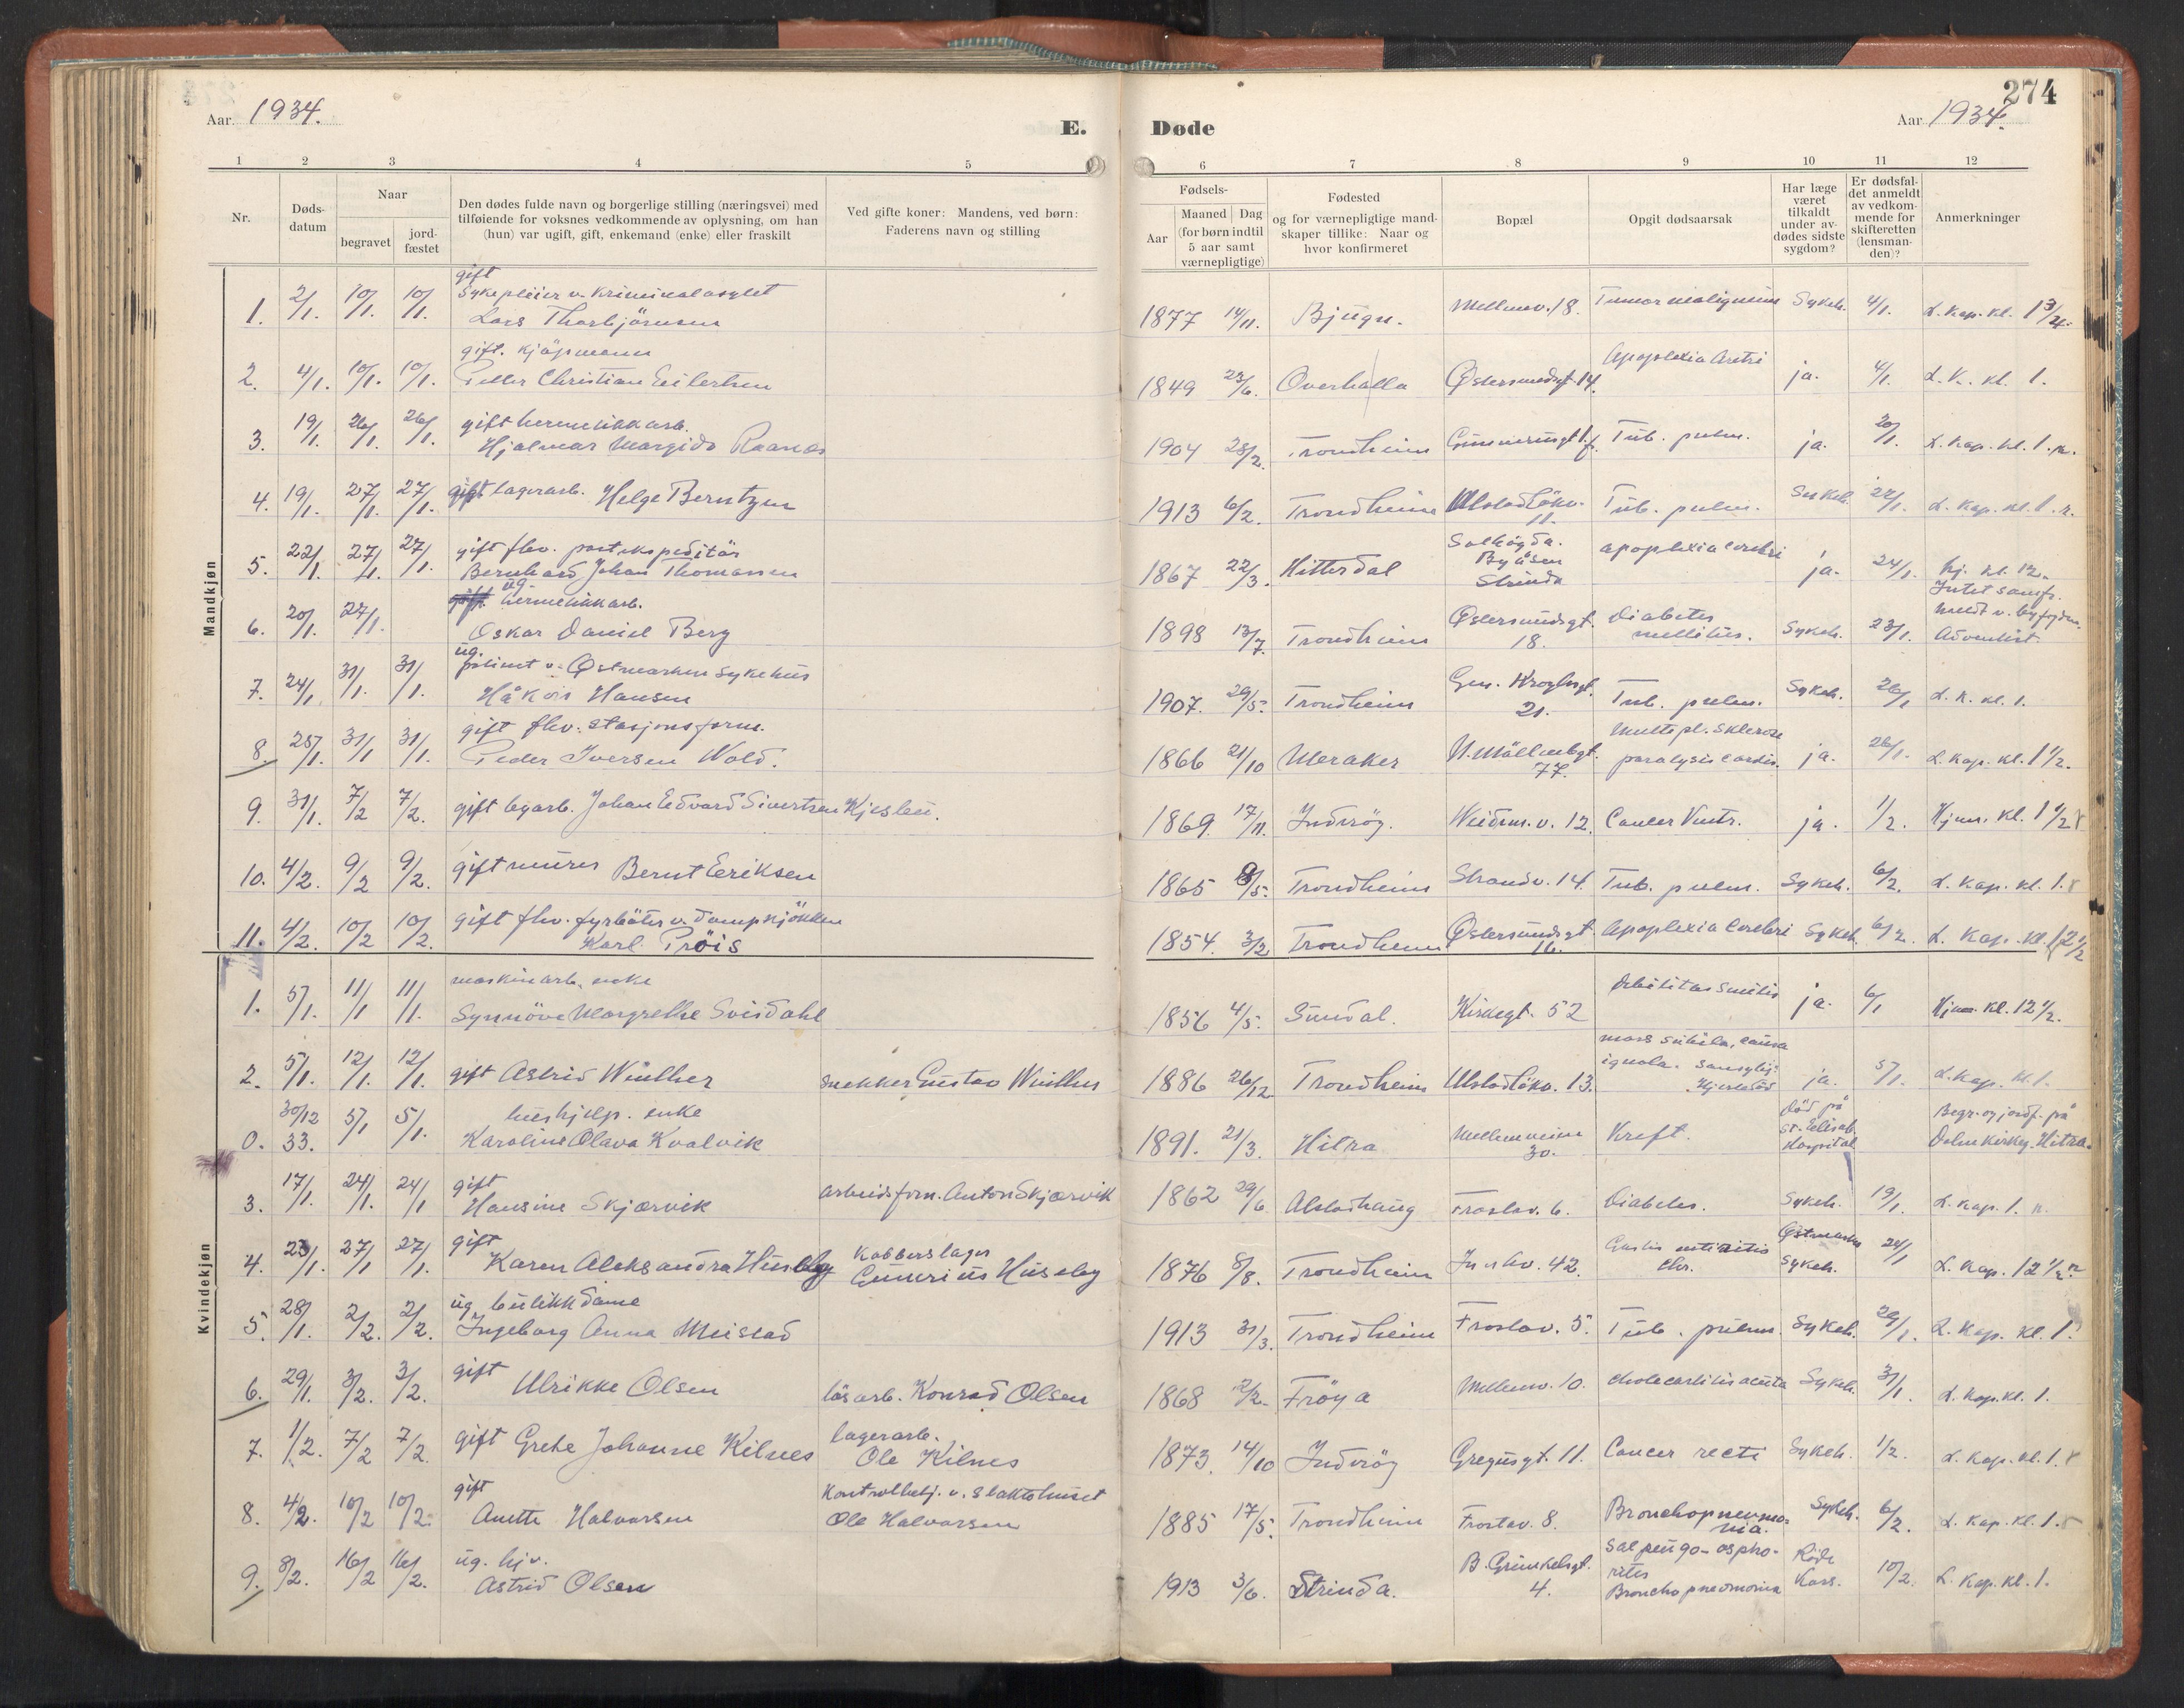 274
Aar 1934.
E. Døde
Aar 1934.
1 2 3 4 5 6 7 8 9 10 11 12
Nr.
Døds-
datum
Naar
begravet
jord-
fæstet
Den dødes fulde navn og borgerlige stilling (næringsvei) med
tilføiende for voksnes vedkommende av oplysning, om han
(hun) var ugift, gift, enkemand (enke) eller fraskilt
Ved gifte koner: Mandens, ved børn:
Faderens navn og stilling
Fødsels-
Aar
Maaned Dag
(for børn indtil
5 aar samt
værnepligtige)
Fødested
og for værnepligtige mand-
skaper tillike: Naar og
hvor konfirmeret
Bopæl
Opgit dødsaarsak
Har læge
været
tilkaldt
under av-
dødes sidste
sygdom?
Er dødsfal-
det anmeldt
av vedkom-
mende for
skifteretten
(lensman-
den)?
Anmerkninger
Mandkjøn
gift
Sykepleier v. Kriminalasylet
1. 2/1. 10/1. 10/1. Lars Thorbjörnsen 1877 14/11. Bjugn. Mellemv. 18. Tumor malignum Sykeh. 4/1. L. Kap. kl.
gift. Kjöpmann
2. 4/1. 10/1. 10/1. Peter Christian Eilertsen 1849 Overhalla Østersundsgt. 14. Apoplexia ja. 4/1. L. K. kl. 1.
gift hermetikkarb.
3. 19/1. 26/1. 26/1. Hjalmar Margido Raanes 1904 28/2. Trondheim Tub. pulm. ja. 20/1. L. Kap. kl. 1.
4. 19/1. 27/1. 27/1. gift lagerarb. Helge Berntzen 1913 6/2. Trondheim Ulstadløkv. 11. Tub. pulm. Sykeh. 22/1. L. Kap. kl. 1.
gift fhv. postekspeditör
5. 22/1. 27/1. 27/1. Bernhard Johan Thomassen 1867 22/3. Hitterdal Solhögda. Byåsen Strinda apoplexia cerebri ja. 24/1. hj. kl. 12.
ug. hermetikkarb.
6. 20/1. 27/1. Oskar Daniel Berg 1898 13/7. Trondheim Østersundsgt. 18. Diabetes mellitus. Sykeh. 23/1. Adventist.
ug.
patient v. Østmarken sykehus
7. 24/1. 31/1. 31/1. Håkon Hansen 1907. 29/5. Trondheim Gen. Kroghsgt. 21. Tub. pulm. Sykeh. 26/1 L. K. kl. 1.
gift fhv. stasjonsform.
8. 25/1. 31/1 31/1. Peder Iversen Wold. 1866 21/10 Meraker N. Möllenbgt. 77. Multipl. Sklerose paralysis cordis. ja. 26/1. L. Kap. kl. 1 1/2.
9. 31/1. 7/2 7/2. gift byarb. Johan Edvard Sivertsen Kjeslen. 1869. 17/11. Inderöy. Weidem. v. 12. Cancer Ventr. ja. 1/2. Hjem. Kl. 1 1/2
10. 4/2. 9/2 9/2. gift murer Bernt Eriksen 1865 8/5. Trondheim Strandv. 14. Tub. pulm. Sykeh. 6/2. L. Kap. kl. 1.
gift fhv. fyrböter v. Dampkjökken
11. 4/2. 10/2 10/2. Karl Pröis 1854. 3/2 Trondheim Østersundsgt. 16. Apoplexia Cerebri Sykeh. 6/2. L. Kap. kl.
Kvindekjøn
maskinarb. enke
1. 5/1. 11/1 11/1. Synnöve Margrethe Svisdahl 1856 4/5. Sundal. Kirkegt. 52 Debilitas senilis ja. 6/1 Hjem. kl. 12 1/2.
2. 5/1. 12/1. 12/1. gift Astrid Winther snekker Gustav Winther 1886 26/12 Trondheim Ulstadløkv. 13. mors subita, causa ignota. sansylig. Hjerteslag ja. 5/1. L. Kap. kl. 1.
hushjelp. enke
0. 30/12 33. 5/1 5/1. Karoline Olava Kvalvik 1891. 21/3. Hitra Mellemveien 30. Kreft. död på St. Elisab. Hospital Begr. og jordf. på Dolm Kirkeg. Hitra.
gift
3. 17/1. 24/1. 24/1 Hansine Skjærvik arbeidsform. Anton Skjærvik 1862 29/6. Alstadhaug Frostav. 6. Diabetes. Sykeh. 19/1. L. Kap. 1.
gift
4. 23/1. 27/1 27/1. Karen Aleksandra Huseby Kobberslager Gunerius Huseby 1876 8/8. Trondheim 42. chr. Østmarken Sykeh. 24/1 L. Kap. 12 1/2
ug butikkdame
5. 28/1. 2/2. 2/2. Ingeborg Anna Meistad 1913 31/3. Trondheim Frostav. 5. Tub. pulm. Sykeh. 29/1. L. Kap. kl. 1.
6. 29/1. 3/2. 3/2. gift Ulrikke Olsen lösarb. Konrad Olsen 1868 Fröya Mellemv. 10. acuta Sykeh. 31/1. L. Kap. kl. 1.
7. 1/2. 7/2 7/2. gift Grete Johanne Kilnes lagerarb. Ole Kilnes 1873. 14/10 Inderöy Gregusgt. 11. Cancer recti Sykeh. 1/2. L. Kap. kl. 1.
gift
8. 4/2. 10/2 10/2. Anette Halvorsen Kontrollhj. v. Slaktehuset Ole Halvorsen 1885 17/5. Trondheim Frostav. 8. Bronchopneumonia. Sykeh. 6/2. L. Kap. kl. 1.
ug. hj.
9. 8/2. 16/2 16/2. Astrid Olsen 1913 3/6. Strinda. B. Grimkelsgt. 4. Salpingo- Bronchopneumonia Röde Kors. 10/2. L. Kap. kl. 1.